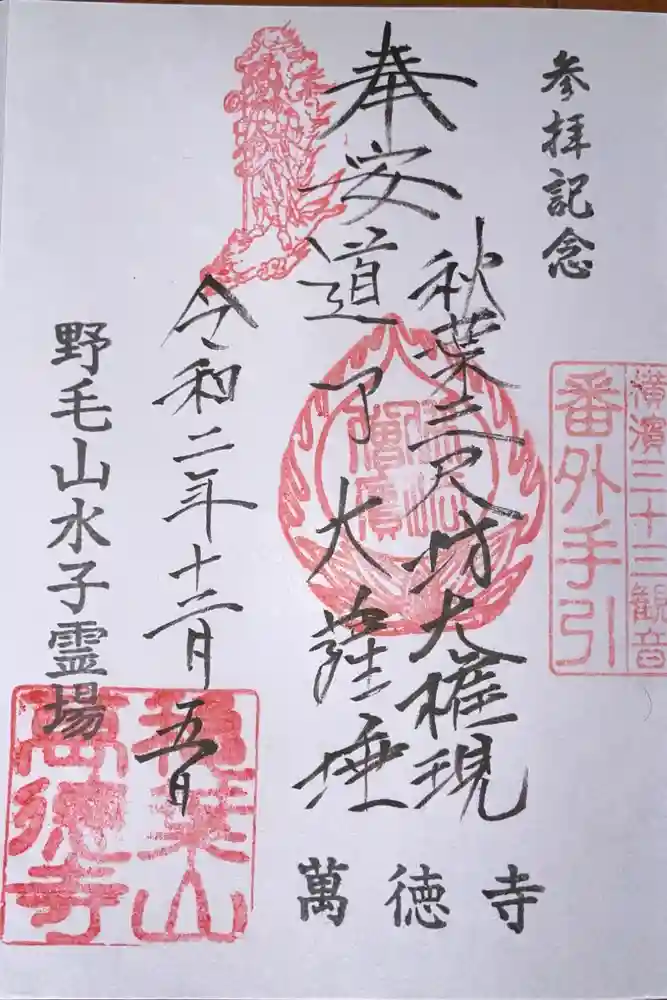 参拝記念
横濱三十三観音
番外手引
奉安
秋葉三尺坊大権現
道了大薩埵
令和二年十二月五日
野毛山水子霊場
萬徳寺
秋葉山
萬德寺